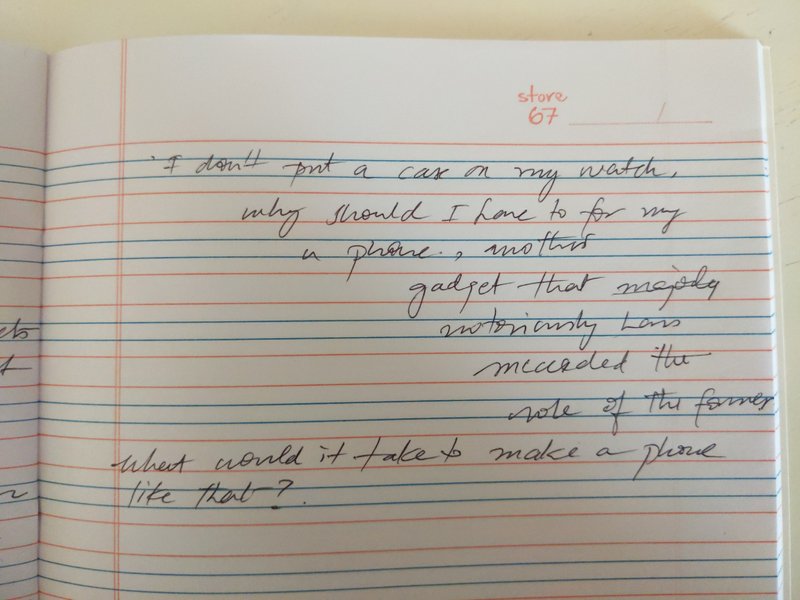 store
67
I don't put a case on my watch,
why should I have to for my
a phone, another
gadget that majorly
notoriously has
succeeded the
role of the former
What would it take to make a phone
like that?
ets